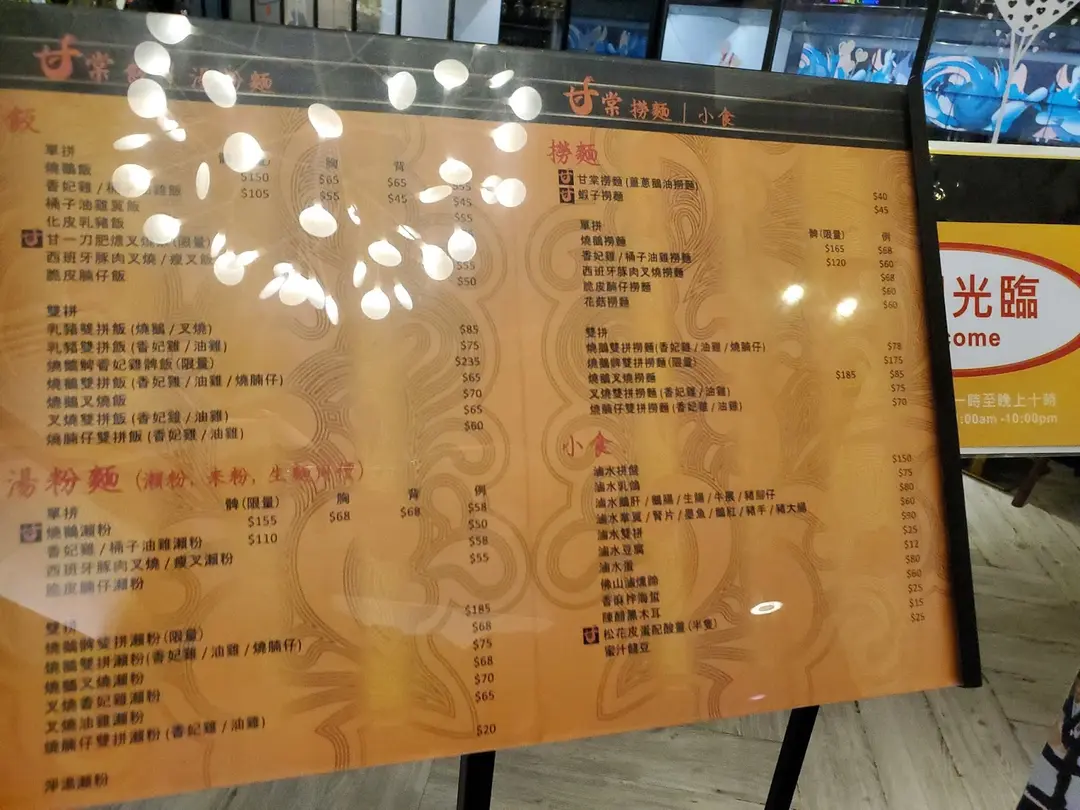 甘棠 湯粉麵
飯
單拼
燒鵝飯 $150 $65 $65 $55
香妃雞 / 桶子油雞飯 $105 $55 $45 $45
桶子油雞翼飯 $55
化皮乳豬飯 $55
甘一刀肥燶叉燒飯 (限量)
西班牙豚肉叉燒 / 瘦叉飯 $55
脆皮腩仔飯 $50
雙拼
乳豬雙拼飯 (燒鵝 / 叉燒) $85
乳豬雙拼飯 (香妃雞 / 油雞) $75
燒鵝髀香妃雞髀飯 (限量) $235
燒鵝雙拼飯 (香妃雞 / 油雞 / 燒腩仔) $65
燒鵝叉燒飯 $70
叉燒雙拼飯 (香妃雞 / 油雞) $65
燒腩仔雙拼飯 (香妃雞 / 油雞) $60
湯粉麵 (瀨粉, 米粉, 生麵
單拼 髀 (限量) 胸 背 例
燒鵝瀨粉 $155 $68 $68 $58
香妃雞 / 桶子油雞瀨粉 $110 $50
西班牙豚肉叉燒 / 瘦叉瀨粉 $58
脆皮腩仔瀨粉 $55
雙拼
燒鵝髀雙拼瀨粉 (限量) $185
燒鵝雙拼瀨粉 (香妃雞 / 油雞 / 燒腩仔) $68
燒鵝叉燒瀨粉 $75
叉燒香妃雞瀨粉 $68
叉燒油雞瀨粉 $70
燒腩仔雙拼瀨粉 (香妃雞 / 油雞) $65
淨湯瀨粉 $20
甘棠 撈麵 | 小食
撈麵
甘棠撈麵 (薑蔥鵝油撈麵) $40
蝦子撈麵 $45
單拼 髀 (限量) 例
燒鵝撈麵 $165 $68
香妃雞 / 桶子油雞撈麵 $120 $60
西班牙豚肉叉燒撈麵 $68
脆皮腩仔撈麵 $60
花菇撈麵 $60
雙拼
燒鵝雙拼撈麵 (香妃雞 / 油雞 / 燒腩仔) $78
燒鵝髀雙拼撈麵 (限量) $175
燒鵝叉燒撈麵 $185 $85
叉燒雙拼撈麵 (香妃雞 / 油雞) $75
燒腩仔雙拼撈麵 (香妃雞 / 油雞) $70
小食
滷水拼盤 $150
滷水乳鴿 $75
滷水鵝肝 / 鵝腸 / 生腸 / 牛𦟌 / 豬腳仔 $80
滷水掌翼 / 腎片 / 墨魚 / 鵝紅 / 豬手 / 豬大腸 $60
滷水雙拼 $90
滷水豆腐 $25
滷水蛋 $12
佛山燻蹄 $80
香麻拌海蜇 $60
陳醋黑木耳 $25
松花皮蛋配酸薑 (半隻) $15
蜜汁 豆 $25
光臨
come
一時至晚上十時
:00am -10:00pm